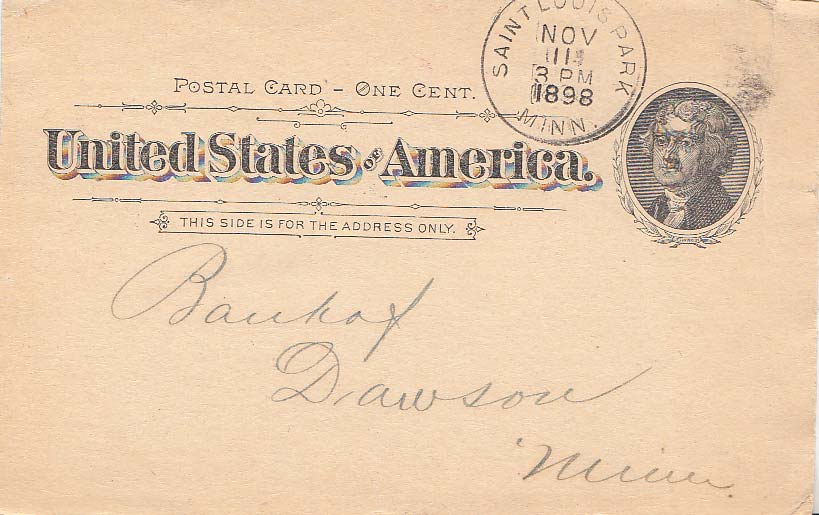 SAINT LOUIS PARK
NOV
11
3 PM
1898
MINN.
POSTAL CARD – ONE CENT.
United States of America.
THIS SIDE IS FOR THE ADDRESS ONLY.
Bank of
Dawson
Minn.